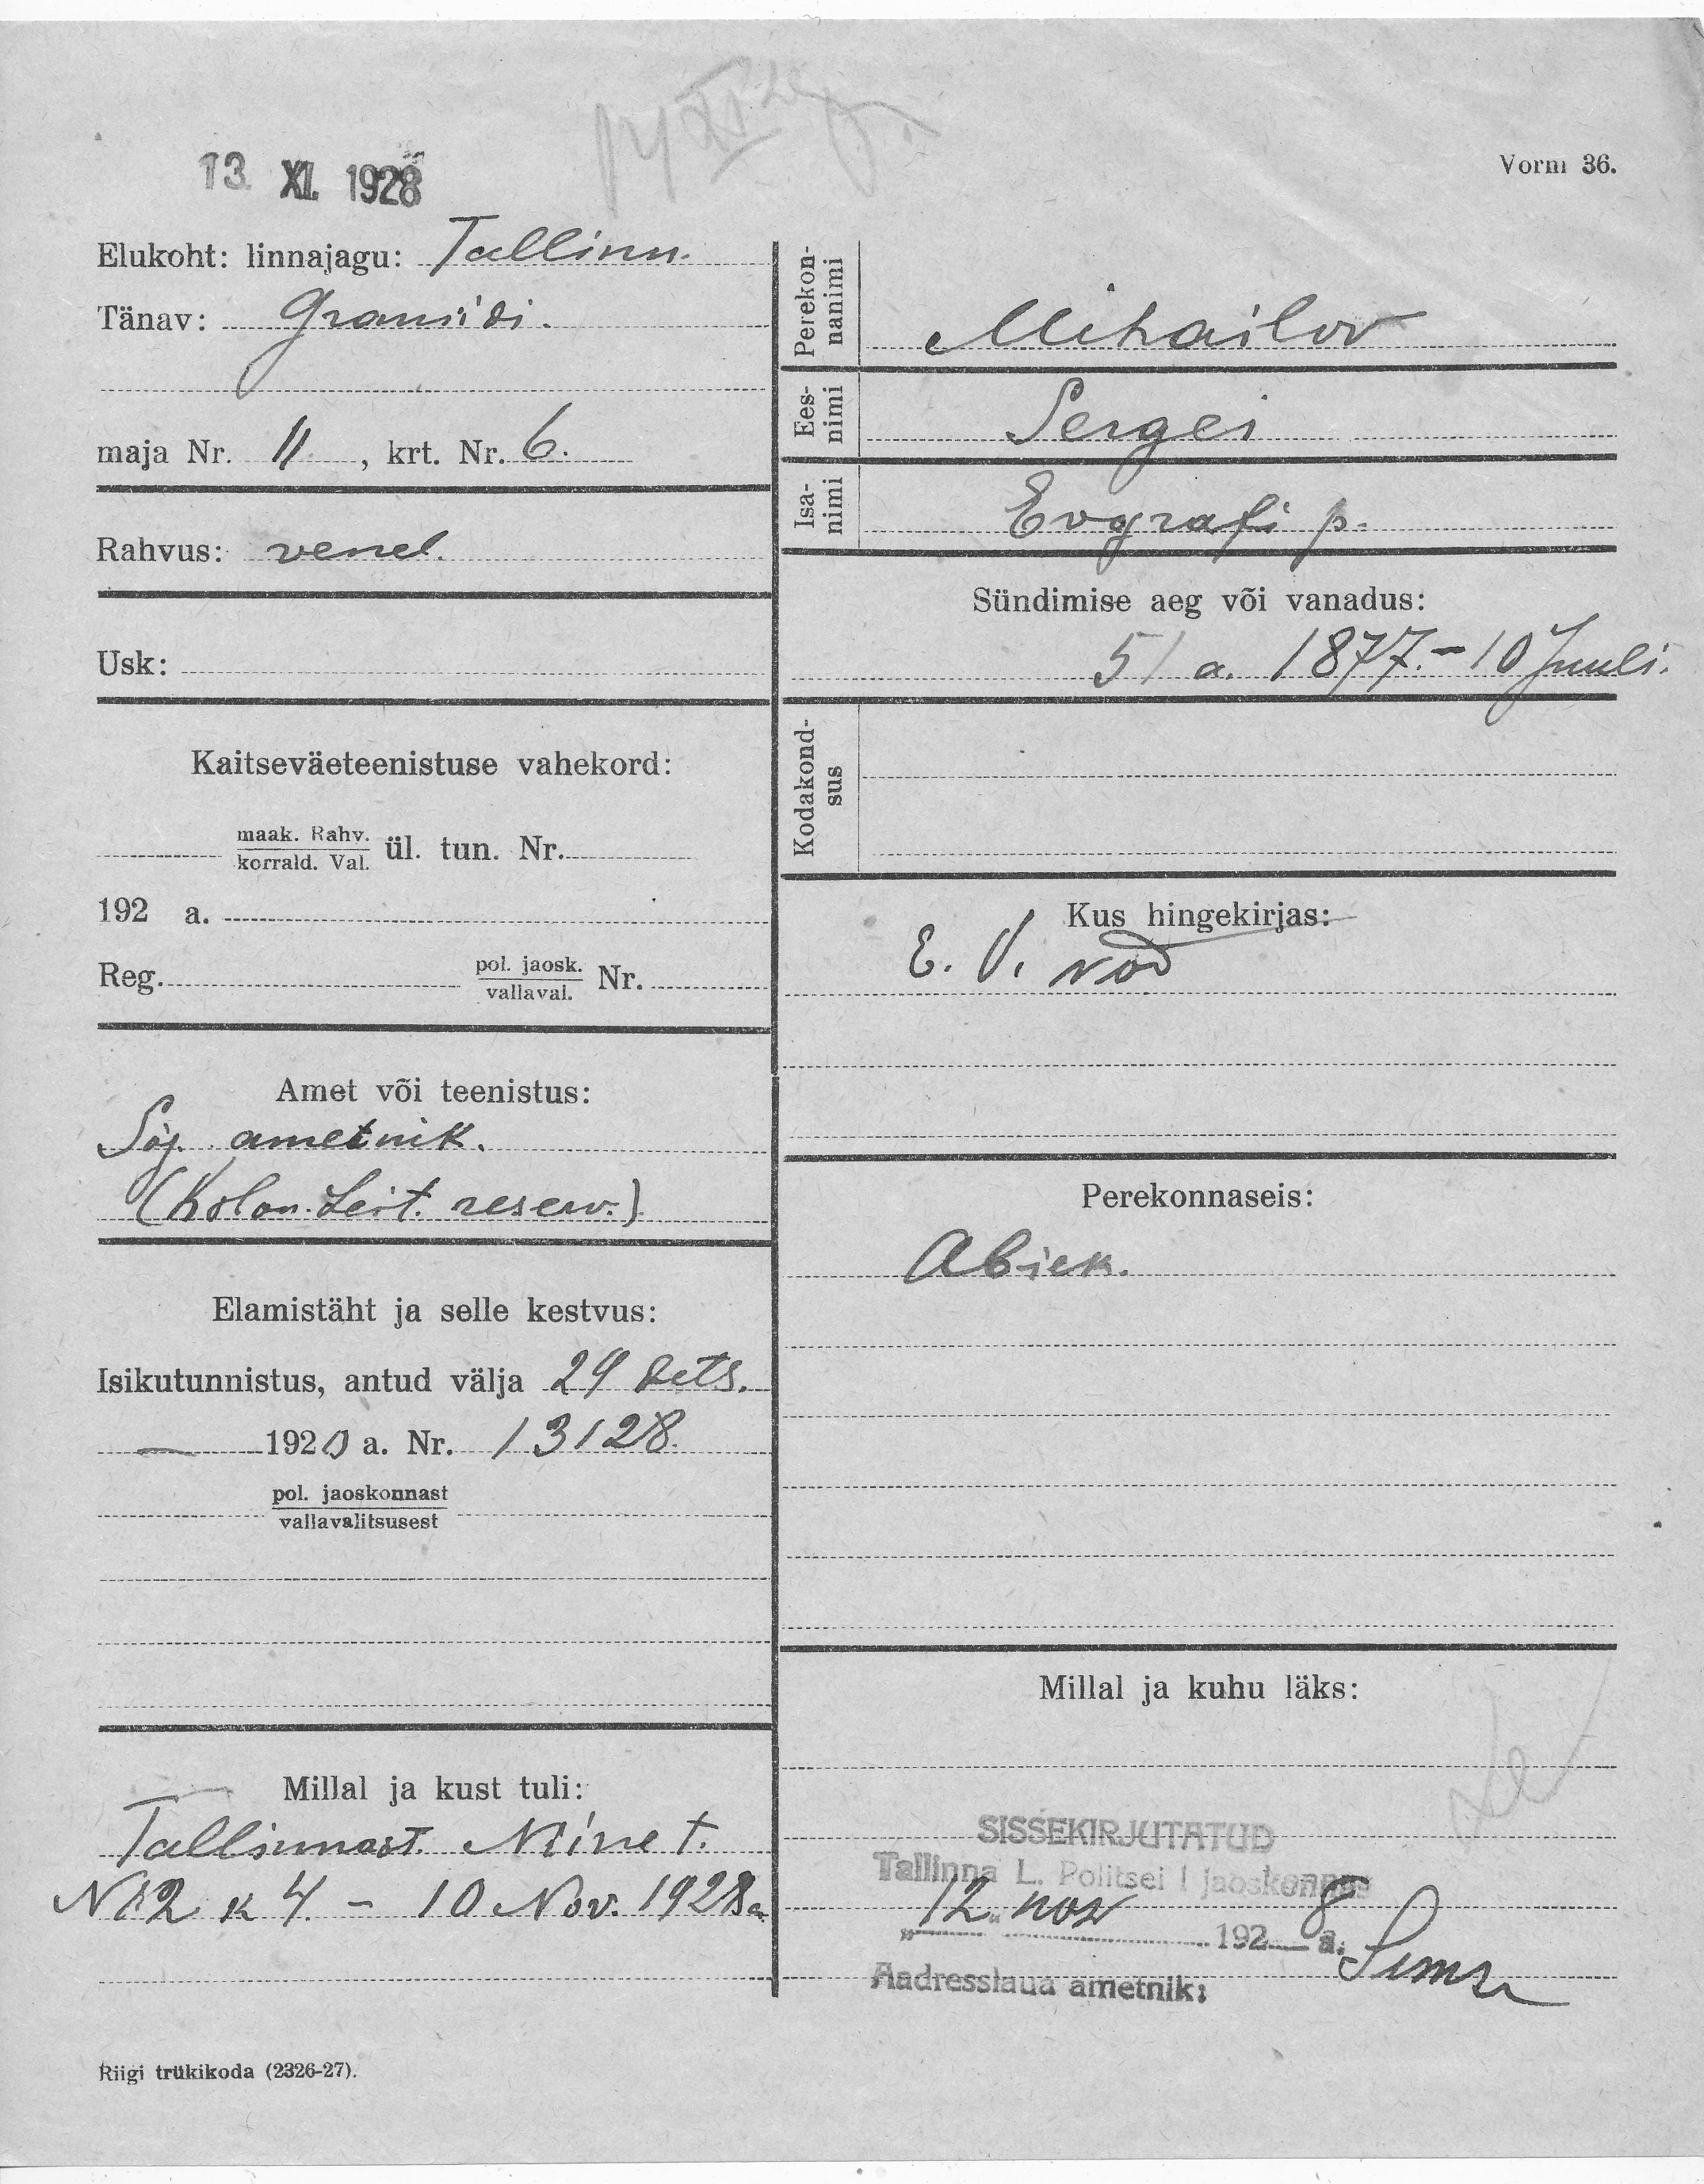 13. XI. 1928
Vorm 36.
Elukoht: linnajagu: Tallinn.
Tänav: Graniidi.
maja Nr. 11, krt. Nr. 6.
Rahvus: venel.
Usk:
Kaitseväeteenistuse vahekord:
maak. Rahv.
korrald. Val. ül. tun. Nr.
192 a.
Reg. pol. jaosk.
vallaval. Nr.
Amet või teenistus:
Sõj. ametnik.
(Kolon. Leit. reserv.)
Elamistäht ja selle kestvus:
Isikutunnistus, antud välja 29 dets.
— 1920 a. Nr. 13128.
pol. jaoskonnast
vallavalitsusest
Millal ja kust tuli:
Tallinnast. Nine t.
N12 k 4. – 10 Nov. 1928 a.
Riigi trükikoda (2326-27).
Perekonnanimi
Mihailov
Eesnimi
Sergei
Isanimi
Evgrafi p.
Sündimise aeg või vanadus:
51 a. 1877. – 10 Juuli.
Kodakondsus
Kus hingekirjas:
E. V.
Perekonnaseis:
Abiek.
Millal ja kuhu läks:
SISSEKIRJUTATUD
Tallinna L. Politsei I jaoskonnas
"12" nov 1928 a.
Aadresslaua ametnik: